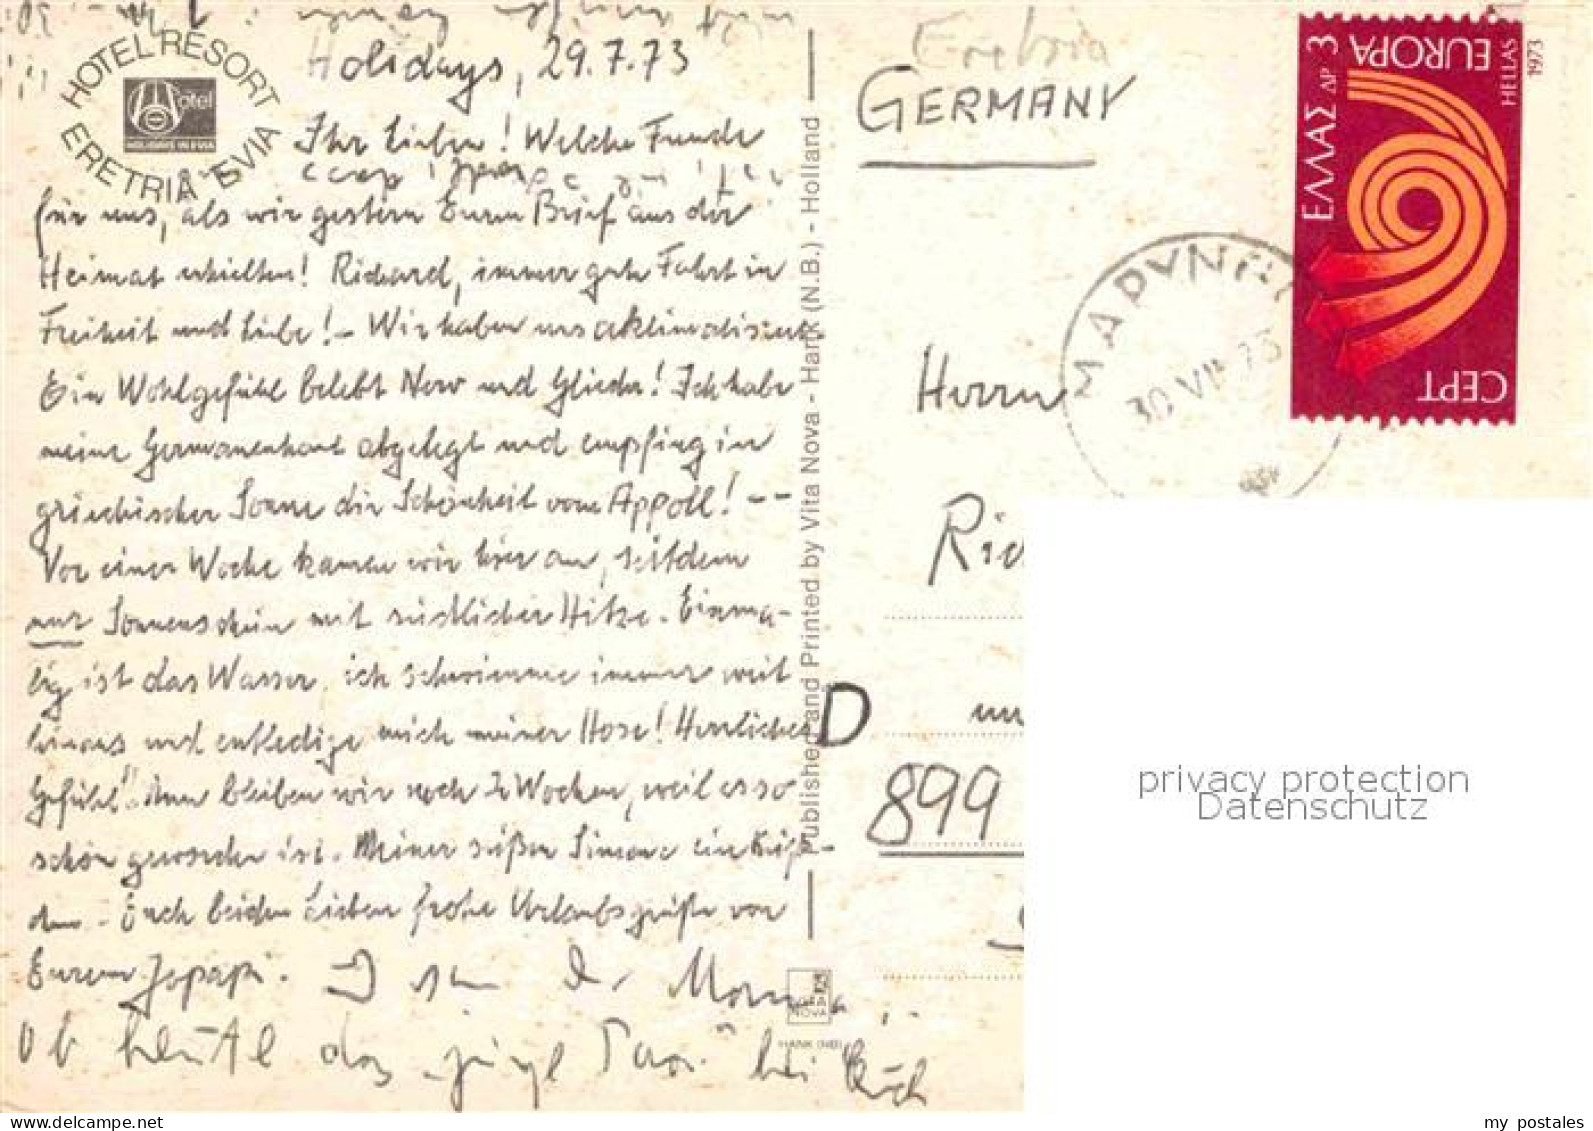 HOTEL RESORT
ERETRIA EVIA
Hotel
HOLIDAYS IN EVIA
Holidays, 29.7.73
Ihr Lieben! Welche Freude
für uns, als wir gestern Euren Brief aus der
Heimat erhielten! Richard, immer gute Fahrt in
Freiheit und Liebe! - Wir haben uns aklimatisiert.
Ein Wohlgefühl belebt Nerv und Glieder! Ich habe
meine Germanenhaut abgelegt und empfing in
griechischer Sonne die Schönheit vom Appoll! --
Vor einer Woche kamen wir hier an, seitdem
nur Sonnenschein mit südlicher Hitze. Einma-
lig ist das Wasser, ich schwimme immer weit
hinaus und entledige mich meiner Hose! Herrliches
Gefühl! Nun bleiben wir noch 2 Wochen, weil es so
schön geworden ist. Meiner süßen Simone ein Küß-
chen. Euch beiden Lieben frohe Urlaubsgrüße von
Eurem Jopapi.
Ob heute das junge Paar bei Euch
Published and Printed by Vita Nova - Hank (N.B.) - Holland
VITA
NOVA
HANK (NB)
Eretria
GERMANY
ΕΛΛΑΣ ΔΡ 3
EUROPA
CEPT
HELLAS
1973
ΜΑΡΥΝΘ
30 VII 73
Herrn
Ric
D
899
privacy protection
Datenschutz
www.delcampe.net
my_postales